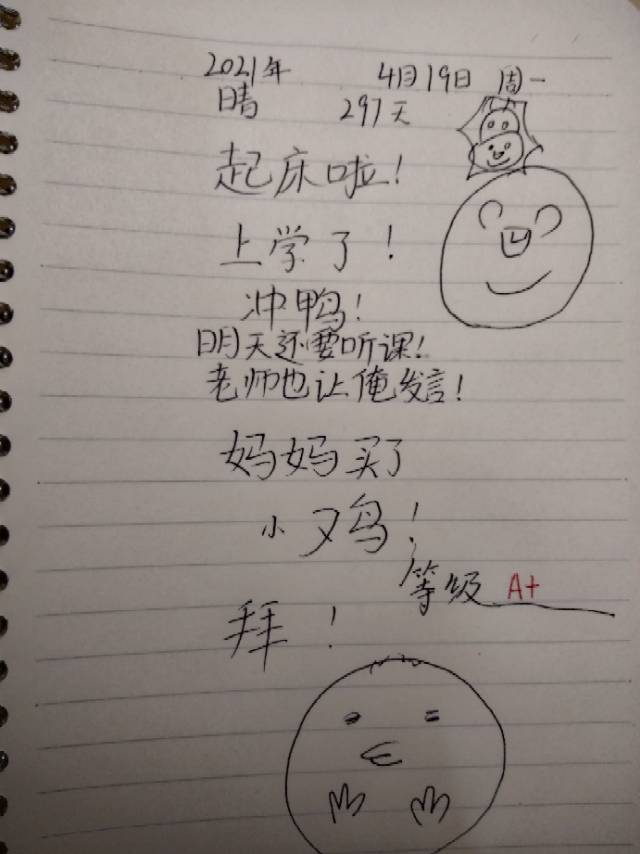 2021年 4月19日 周一
晴 297天
起床啦!
上学了!
冲鸭!
明天还要听课!
老师也让俺发言!
妈妈买了
小又鸟!
等级 A+
拜!